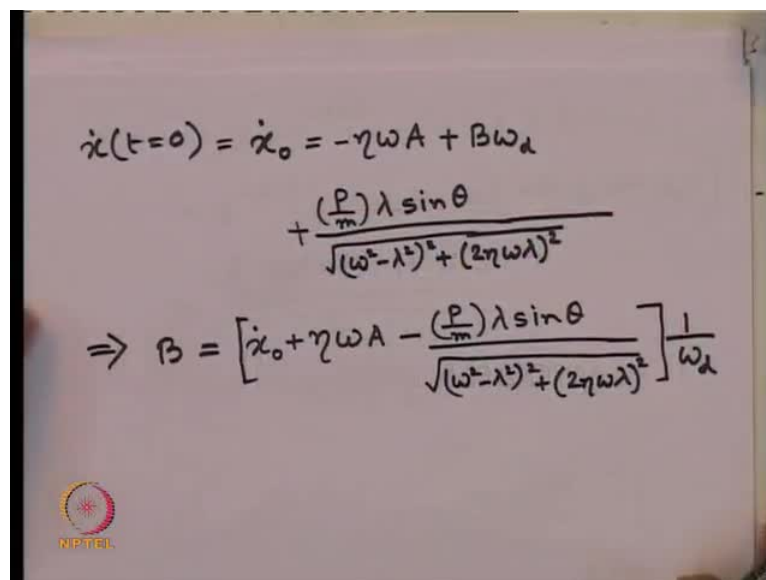 ẋ(t=0) = ẋ₀ = -ηωA + Bω_d
+ (P/m) λ sin θ / √((ω²-λ²)² + (2ηωλ)²)
⇒ B = [ẋ₀ + ηωA - (P/m) λ sin θ / √((ω²-λ²)² + (2ηωλ)²)] 1/ω_d
NPTEL